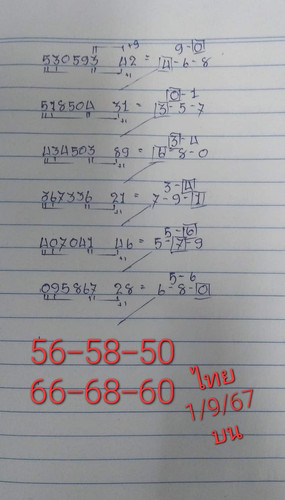 +9 9-0
530593 42 = 4-6-8
0-1
578504 31 = 3-5-7
+1
3-4
434503 89 = 6-8-0
+1
3-4
367336 21 = 7-9-1
+1
5-6
407041 46 = 5-7-9
+1
5-6
095867 28 = 6-8-0
+1
56-58-50
66-68-60
ไทย
1/9/67
บน